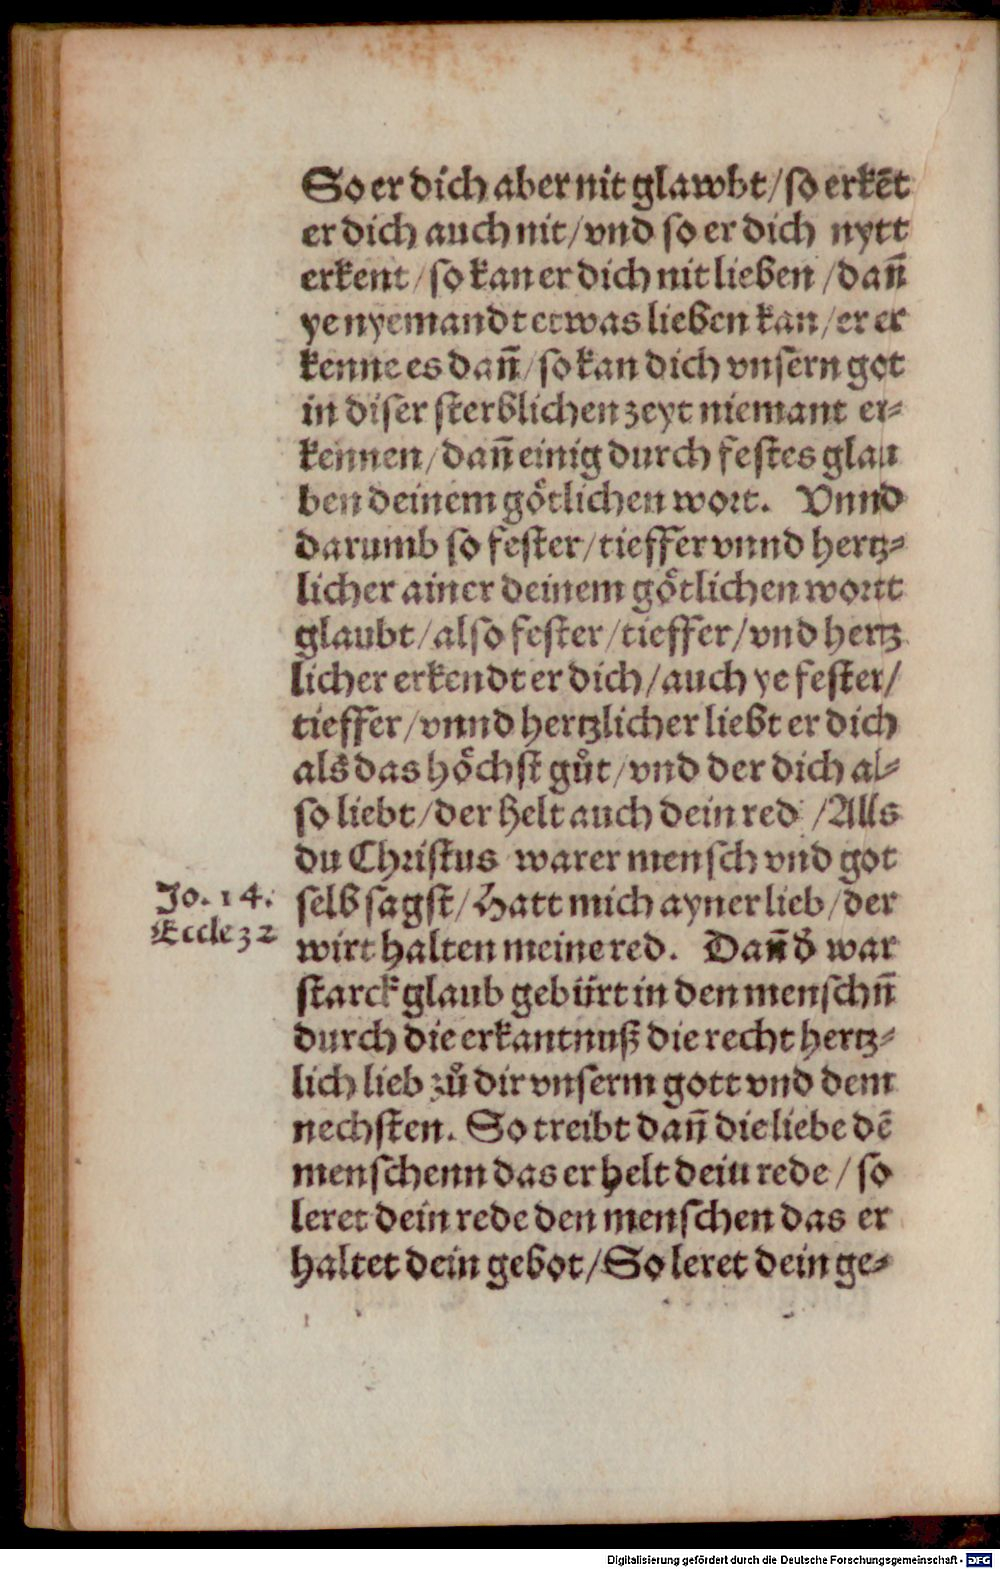 So er dich aber nit glawbt / so erkēt
er dich auch nit / vnd so er dich nytt
erkent / so kan er dich nit lieben / dañ
ye nyemandt etwas lieben kan / er er
kenne es dañ / so kan dich vnsern got
in diser sterblichen zeyt niemant er⸗
kennen / dañ einig durch festes glau
ben deinem götlichen wort. Vnnd
darumb so fester / tieffer vnnd hertz⸗
licher ainer deinem götlichen wortt
glaubt / also fester / tieffer / vnd hertz
licher erkendt er dich / auch ye fester /
tieffer / vnnd hertzlicher liebt er dich
als das höchst gůt / vnd der dich al⸗
so liebt / der helt auch dein red / Alls
du Christus warer mensch vnd got
Jo. 14.
selb sagst / Hatt mich ayner lieb / der
Eccle 32
wirt halten meine red. Dañ d̕ war
starck glaub gebürt in den menschñ
durch die erkantnuß die recht hertz⸗
lich lieb zů dir vnserm gott vnd dem
nechsten. So treibt dañ die liebe dē
menschenn das er helt deiu rede / so
leret dein rede den menschen das er
haltet dein gebot / So leret dein ge⸗
Digitalisierung gefördert durch die Deutsche Forschungsgemeinschaft - DFG